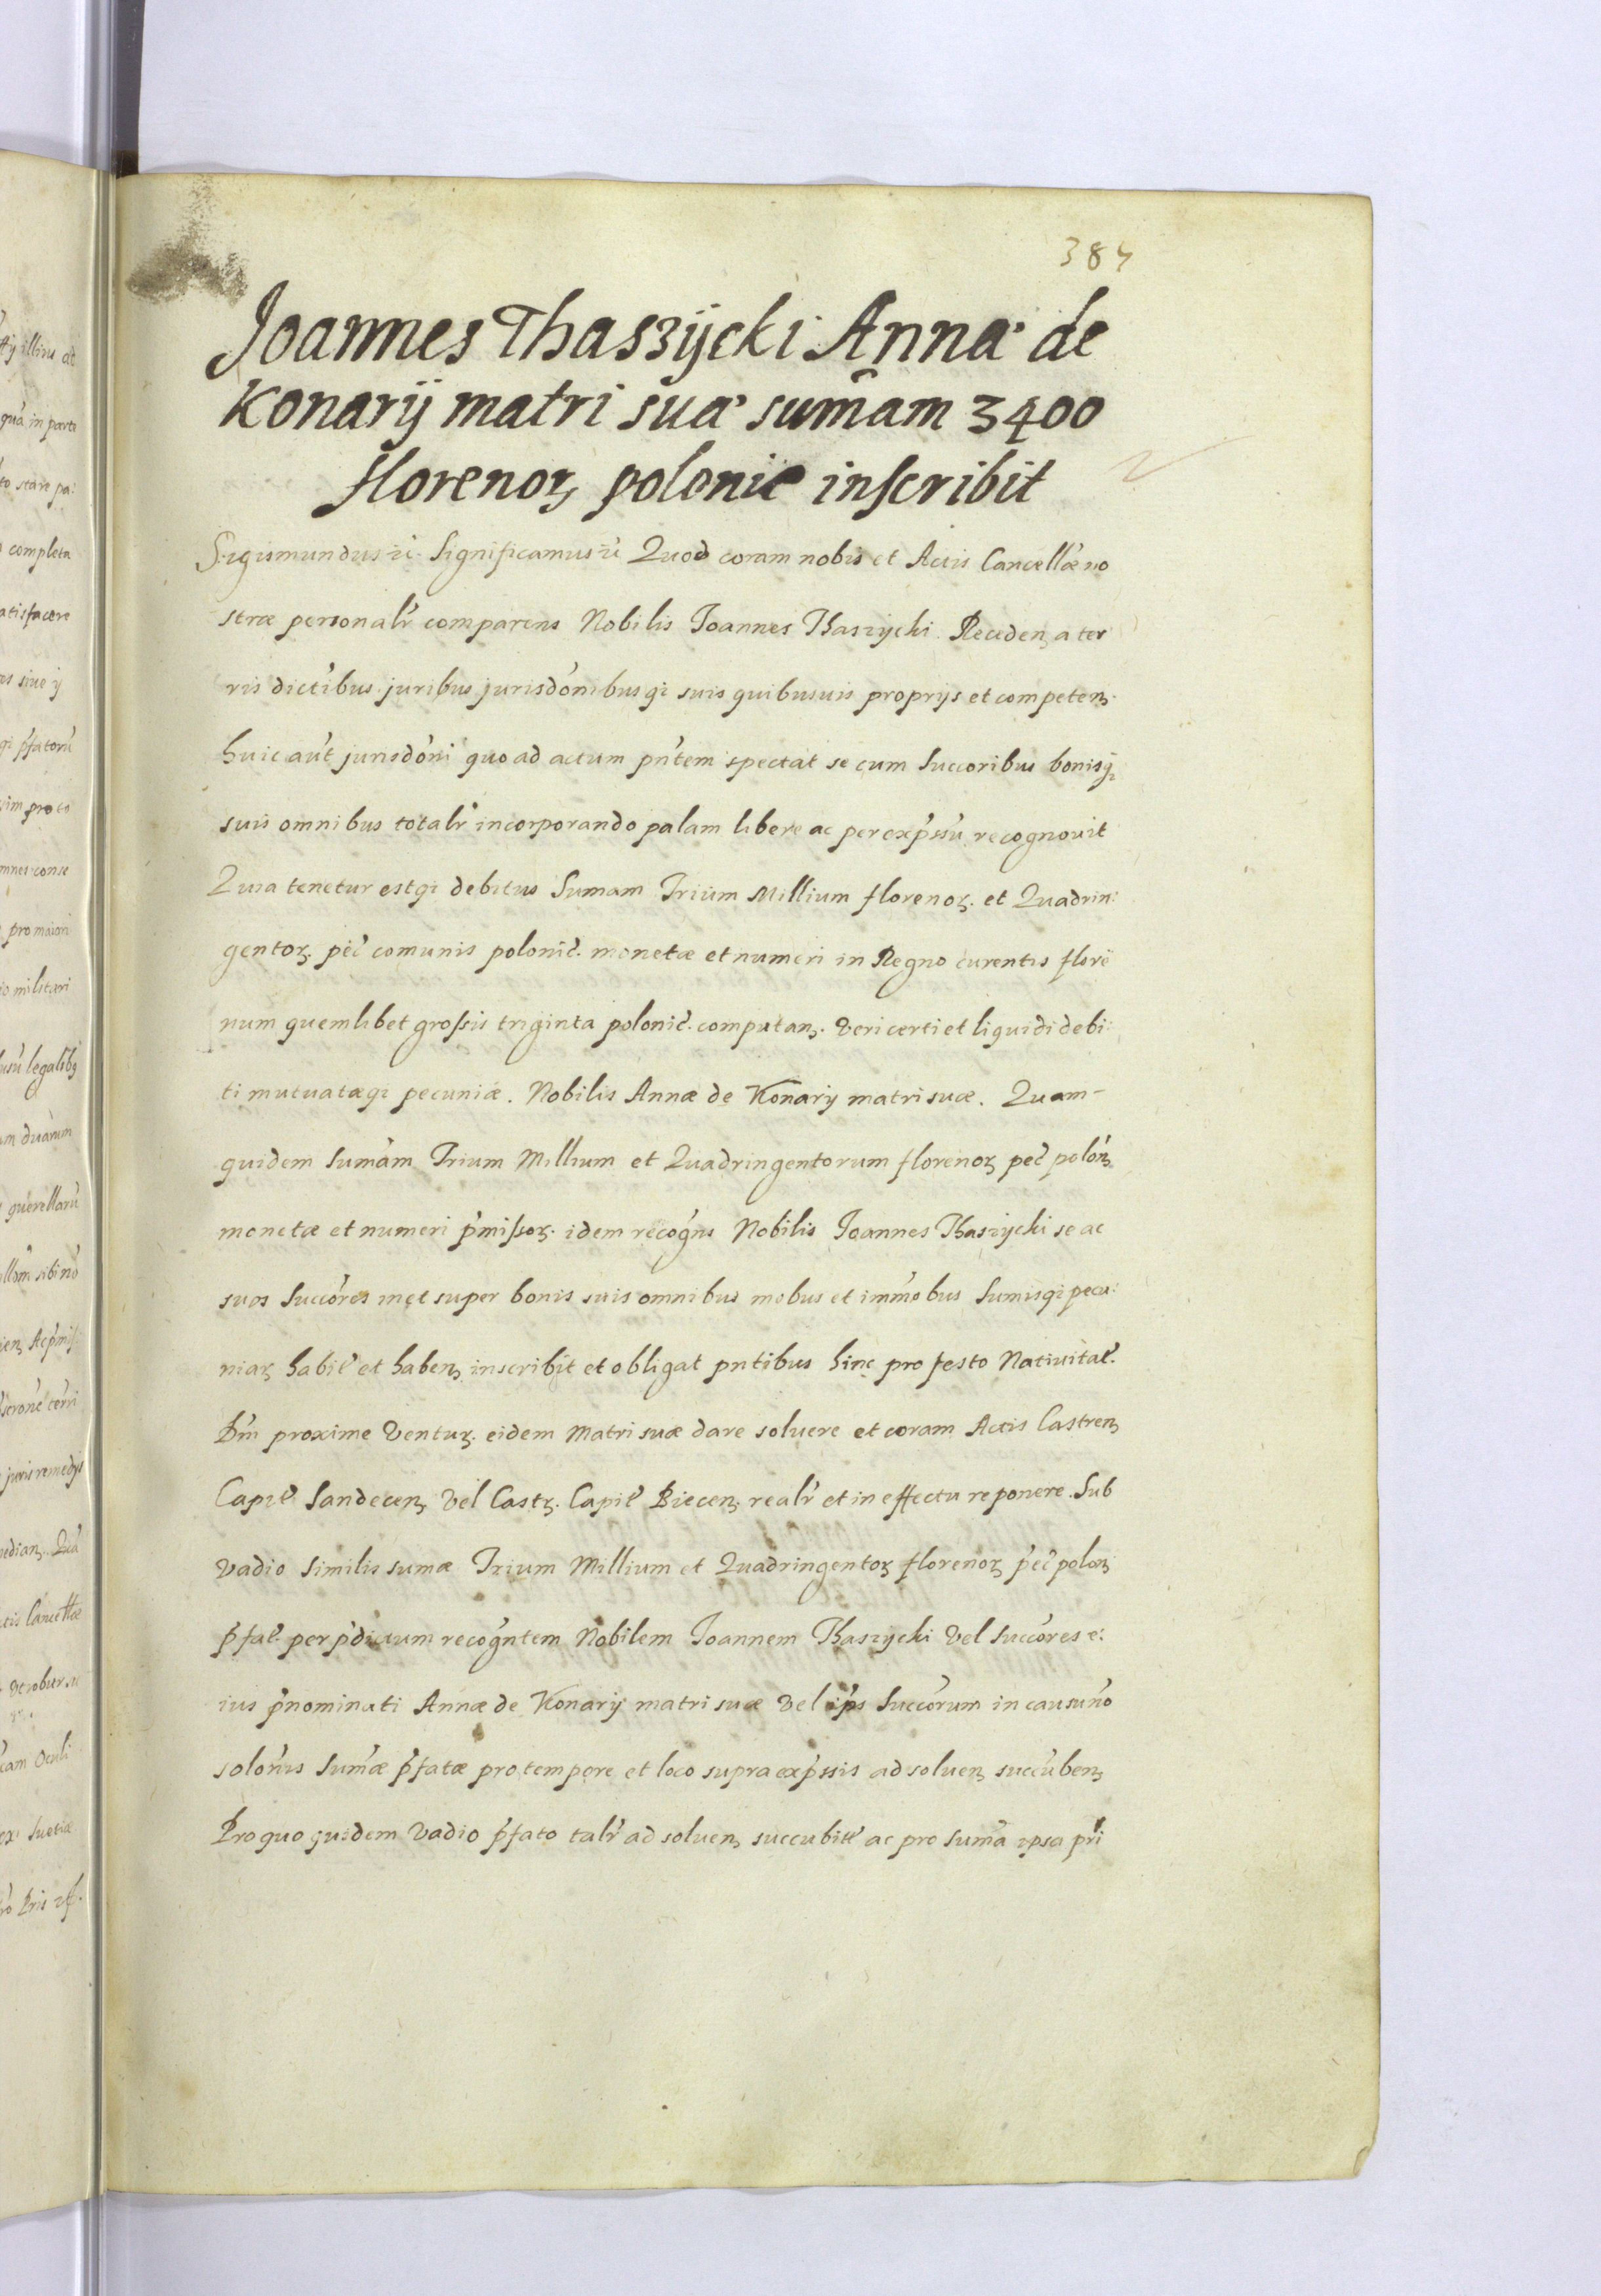 384
Joannes Thaszÿcki Annæ de
Konarÿ matri suæ sum̃am 3400
florenoꝝ polonic inscribit
Sigismundus ꝛc̃. Significamus ꝛc̃ Quod coram nobis et Actis Cancellæ no
stræ personalr̃ comparens Nobilis Joannes Thaszycki. Recedenꝫ a ter
ris dictibus juribus jurisdõnibusqꝫ suis quibusuis proprijs et competenꝫ.
huic aũt jurisdõni quo ad actum pñtem spectat se cum Succoribus bonisqꝫ
suis omnibus totalr̃ incorporando palam libere ac per exp̃ssũ recognouit
Quia tenetur estqꝫ debitus Sumam Trium Millium florenoꝝ. et Quadrin:
gentoꝝ. pec̃ comunis polonic̃. monetæ et numeri in Regno curentis flore
num quemlibet grossis triginta polonic̃. computanꝫ. Veri certi et liquidi debi:
ti mutuatæqꝫ pecuniæ. Nobilis Annæ de Konary matri suæ. Quam-
quidem Sumam Trium Millium et Quadringentorum florenoꝝ pec̃ polonꝫ
monetæ et numeri p̃missoꝝ. idem recogñs Nobilis Joannes Thaszycki se ac
suos Succõres met super bonis suis omnibus mobus et im̃mobus Sumisqꝫ pecu:
niaꝝ habit̃ et habenꝫ inscribit et obligat pntibus hinc pro festo Natiuitat̃.
Dñi proxime Ventuꝝ. eidem Matri suæ dare soluere et coram Actis Castrenꝫ
Capit̃ Sandecenꝫ Vel Castꝝ. Capit̃ Biecenꝫ. realr̃ et in effectu reponere. Sub
Vadio Similis sumæ Trium Millium et Quadringentoꝝ florenoꝝ pec̃ polonꝫ
p̃fat̃. per p̃dictum recogñtem Nobilem Joannem Thaszycki Vel Succõres e:
ius p̃nominati Annæ de Konarÿ matri suæ Vel ip̃s Succõrum in causũ nõ
solõnis Sum̃æ p̃fatæ pro tempore et loco supra exp̃ssis ad soluenꝫ succũbenꝫ
Pro quo quidem Vadio p̃fato talr̃ ad soluenꝫ succubit̃ ac pro Sum̃a ipsa pr̃i